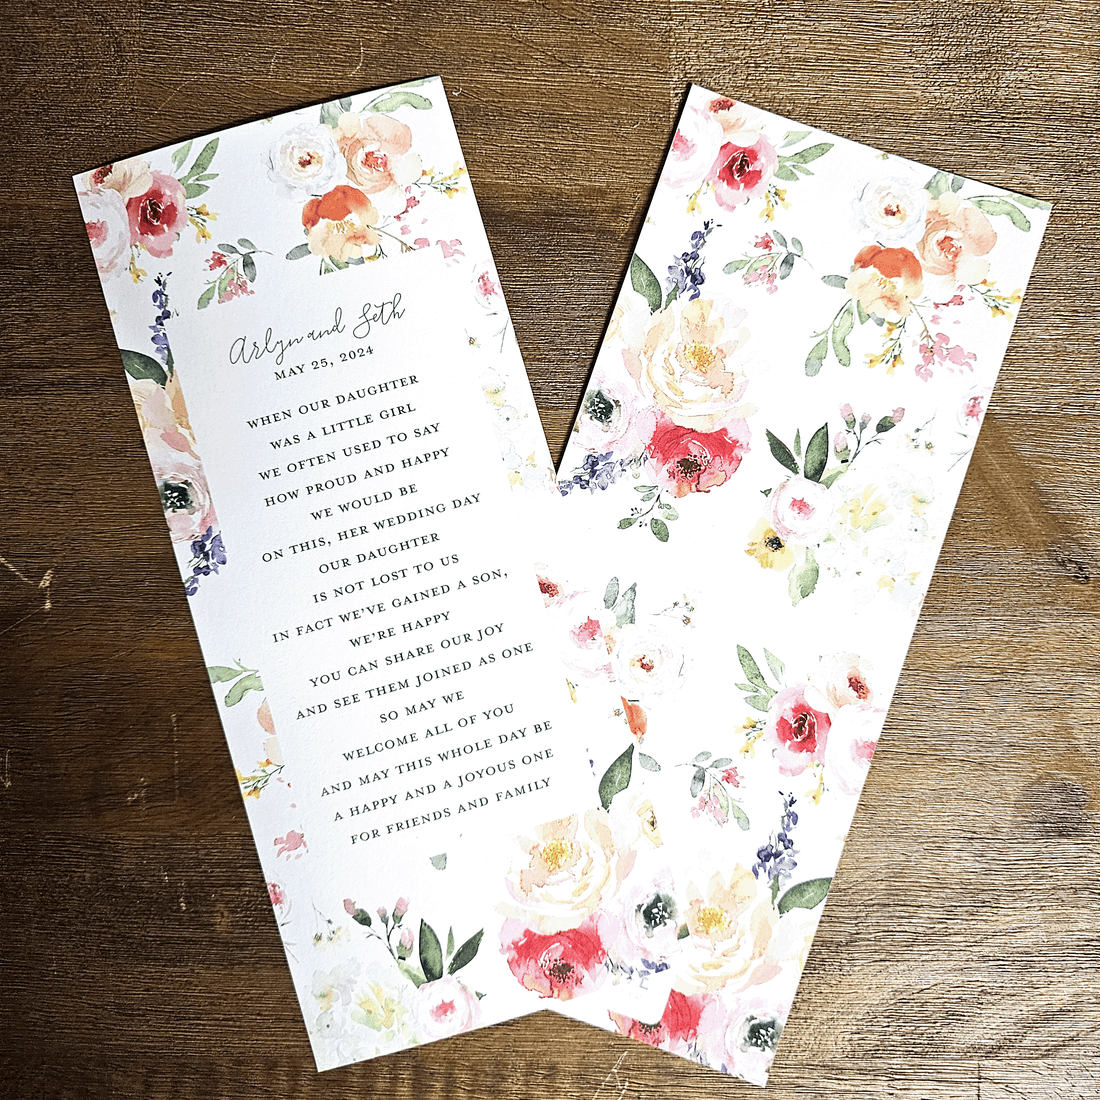 Arlyn and Seth
MAY 25, 2024
WHEN OUR DAUGHTER
WAS A LITTLE GIRL
WE OFTEN USED TO SAY
HOW PROUD AND HAPPY
WE WOULD BE
ON THIS, HER WEDDING DAY
OUR DAUGHTER
IS NOT LOST TO US
IN FACT WE'VE GAINED A SON,
WE'RE HAPPY
YOU CAN SHARE OUR JOY
AND SEE THEM JOINED AS ONE
SO MAY WE
WELCOME ALL OF YOU
AND MAY THIS WHOLE DAY BE
A HAPPY AND A JOYOUS ONE
FOR FRIENDS AND FAMILY